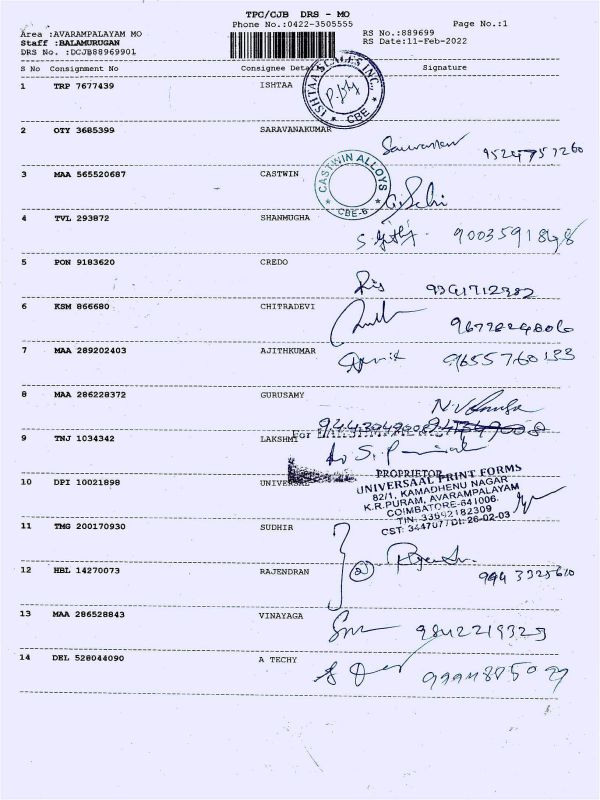 TPC/CJB DRS - MO
Phone No.:0422-3505555 Page No.:1
Area :AVARAMPALAYAM MO RS No.:889699
Staff :BALAMURUGAN RS Date:11-Feb-2022
DRS No. :DCJB88969901
S No Consignment No Consignee Details Signature
1 TRP 7677439 ISHTAA
ISHTAA SCALES INC., CBE
2 OTY 3685399 SARAVANAKUMAR
9524757260
3 MAA 565520687 CASTWIN
CASTWIN ALLOYS CBE-6
4 TVL 293872 SHANMUGHA
9003591848
5 PON 9183620 CREDO
6 KSM 866680 CHITRADEVI
7 MAA 289202403 AJITHKUMAR
9655760133
8 MAA 286228372 GURUSAMY
9 TNJ 1034342 LAKSHMI
For
10 DPI 10021898 UNIVERSAL
PROPRIETOR
UNIVERSAAL PRINT FORMS
82/1, KAMADHENU NAGAR
K.R.PURAM, AVARAMPALAYAM
COIMBATORE-641006.
TIN: 33692182309
CST: 344707/Dt: 26-02-03
11 TMG 200170930 SUDHIR
12 HBL 14270073 RAJENDRAN
2
13 MAA 286528843 VINAYAGA
9842219329
14 DEL 528044090 A TECHY